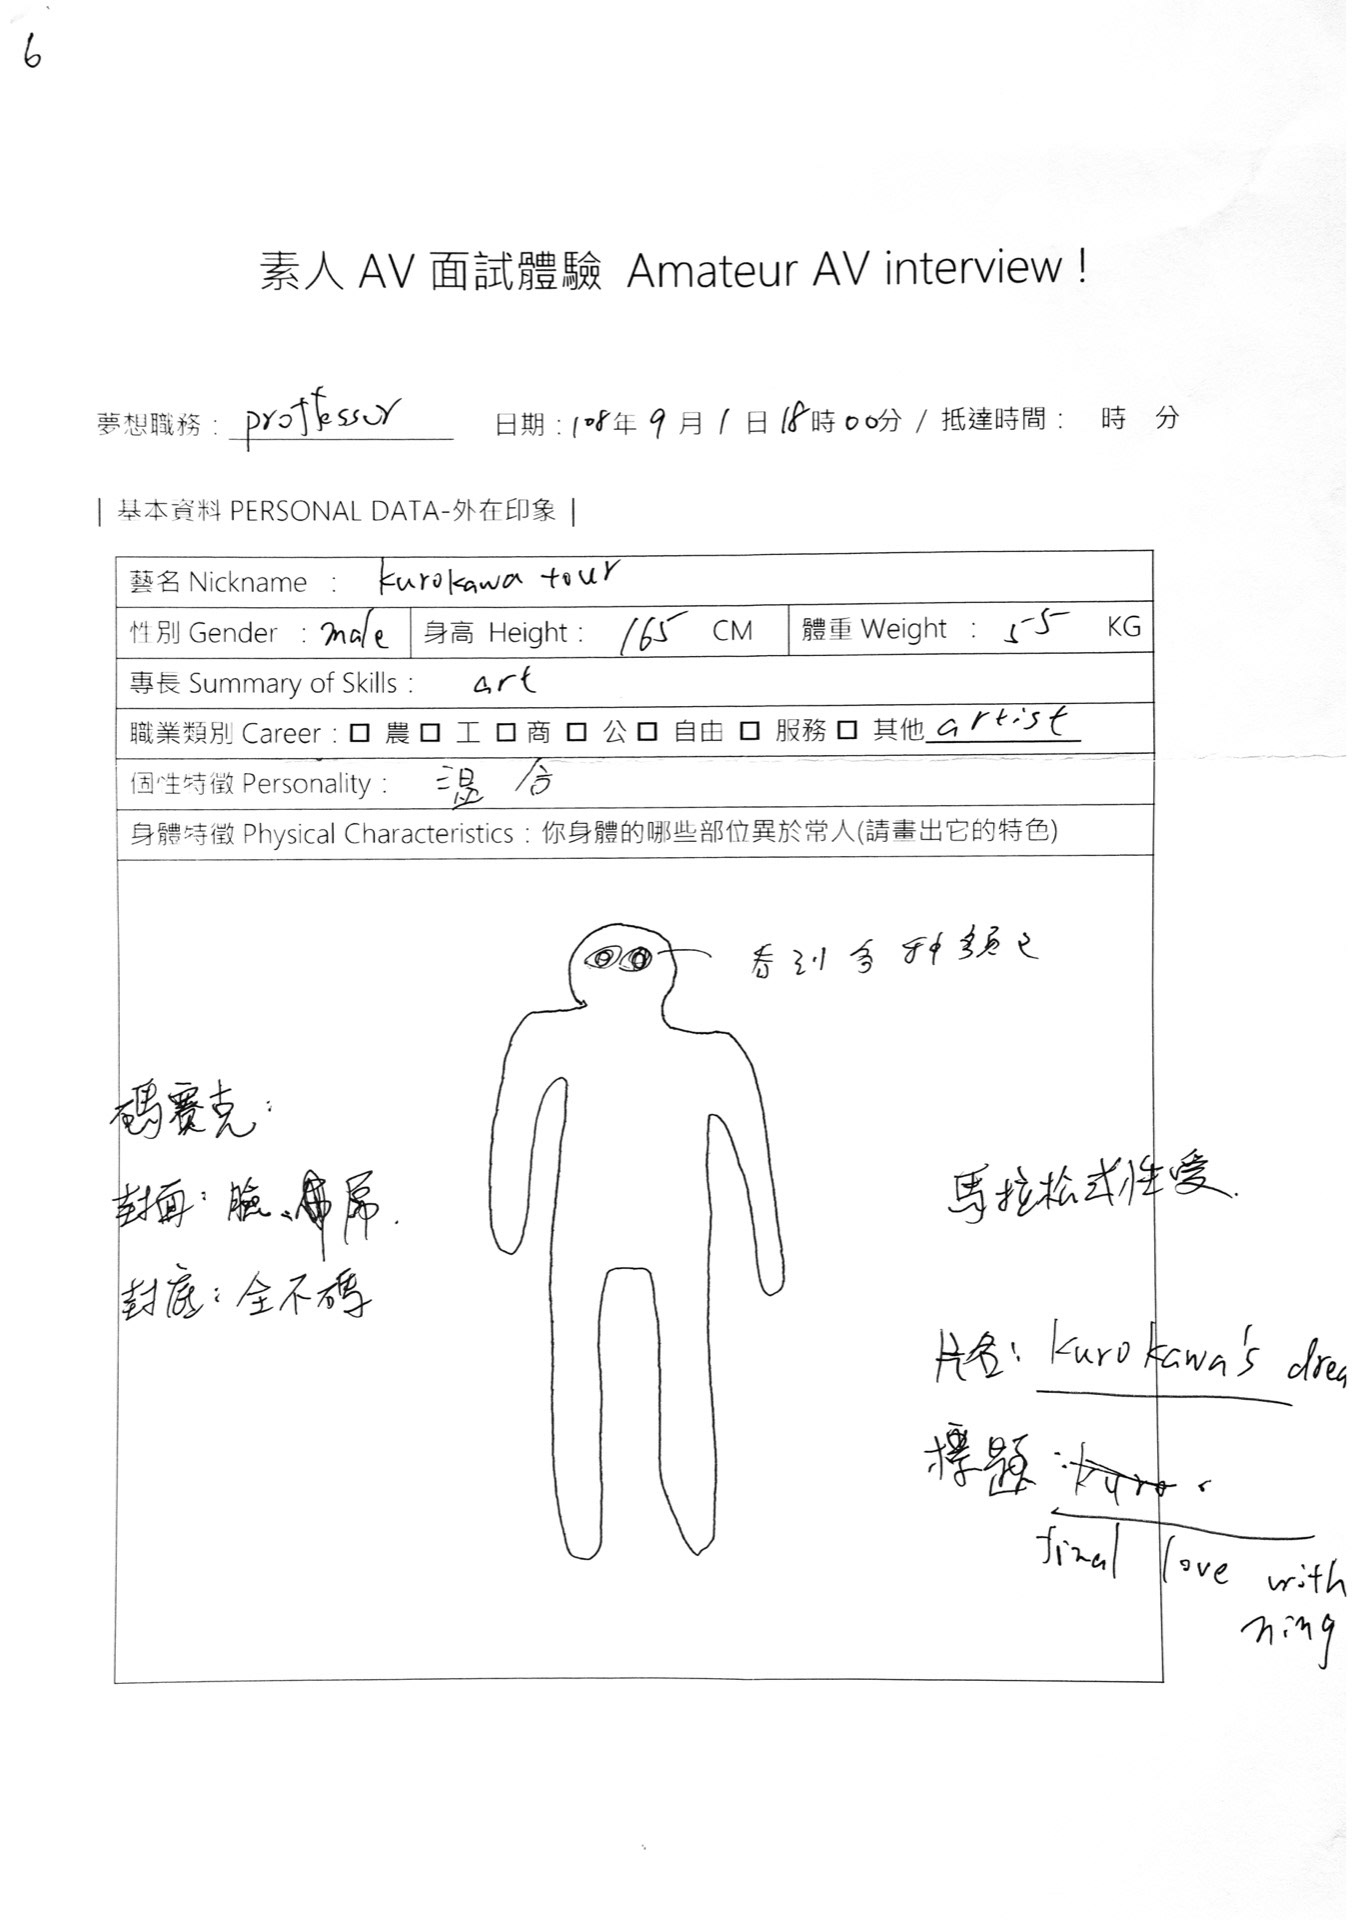 6
素人 AV 面試體驗 Amateur AV interview !
夢想職務 : proffessor 日期 : 108 年 9 月 1 日 18 時 00 分 / 抵達時間 : 時 分
| 基本資料 PERSONAL DATA-外在印象 |
藝名 Nickname : kurokawa tour
性別 Gender : male 身高 Height : 165 CM 體重 Weight : 55 KG
專長 Summary of Skills : art
職業類別 Career : □ 農 □ 工 □ 商 □ 公 □ 自由 □ 服務 □ 其他 artist
個性特徵 Personality : 溫合
身體特徵 Physical Characteristics : 你身體的哪些部位異於常人(請畫出它的特色)
看到多種顏色
碼賽克 :
封面 : 臉、屌.
封底 : 全不碼
馬拉松式性愛.
片名 : kurokawa's drea
標題 : kuro
final love with
ning